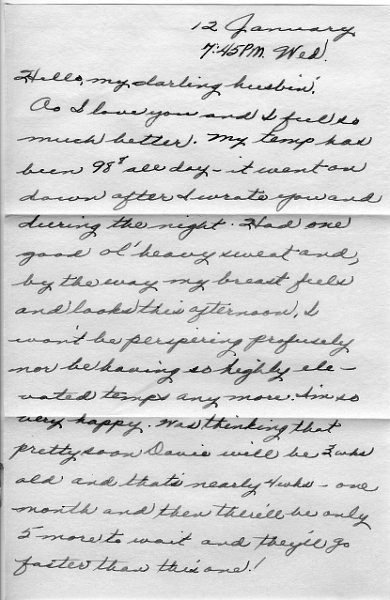 12 January
7:45PM. Wed.
Hello, my darling husbin'.
Oo I love you and I feel so
much better. My temp has
been 98⁸ all day - it went on
down after I wrote you and
during the night. Had one
good ol' heavy sweat and,
by the way my breast feels
and looks this afternoon, I
won't be perspiring profusely
nor be having so highly ele-
vated temps any more. Am so
very happy. Was thinking that
pretty soon Davie will be 3 wks
old and that's nearly 4 wks - one
month and then there'll be only
5 more to wait and they'll go
faster than this one!